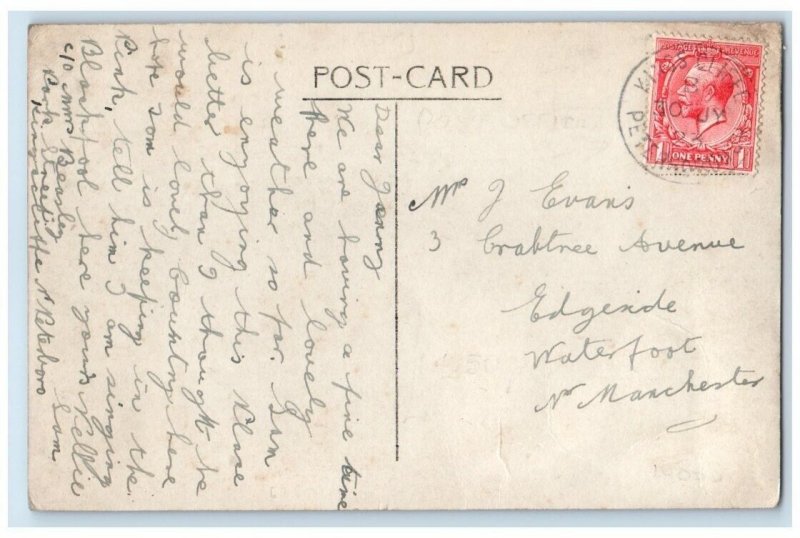 POST-CARD
Dear Jenny
We are having a fine time
here and lovely
weather so far. Sam
is enjoying this Place
better than I thought he
would lovely Country here
hope Tom is keeping in the
Pink, tell him I am singing
Blackpool here yours Nellie
Sam
c/o Mrs Beasley
Park Street
Kingscliffe Nr Peterboro
POSTAGE REVENUE
1 ONE PENNY 1
KING'S CLIFFE
Mrs J Evans
3 Crabtree Avenue
Edgeside
Waterfoot
Nr Manchester